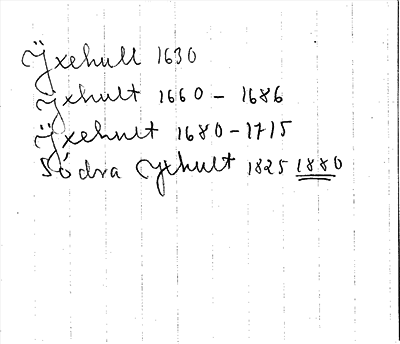 Ÿxehull 1630
Ÿxhult 1660 - 1686
Ÿxehult 1680-1715
Södra Yxhult 1825 1880